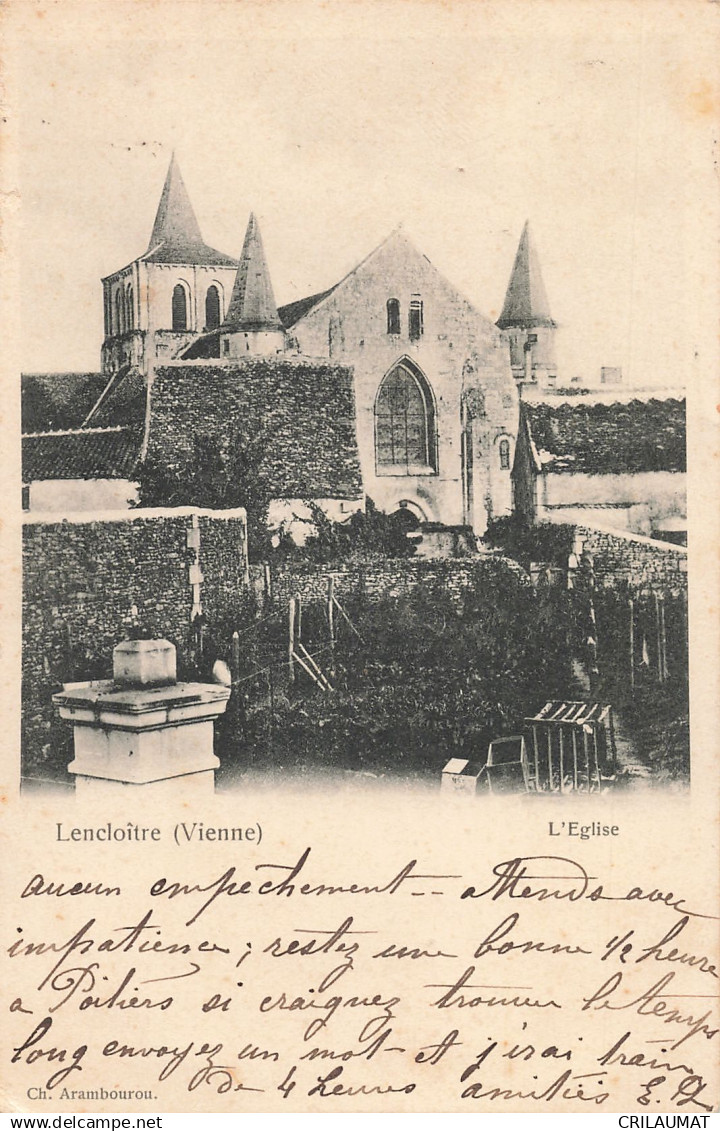 Lencloître (Vienne) L'Eglise
aucun empêchement -- Attends avec
impatience ; restez une bonne 1/2 heure
a Poitiers si craignez trouver le temps
long envoyez un mot et j'irai train
de 4 heures amitiés
Ch. Arambourou.
CRILAUMAT